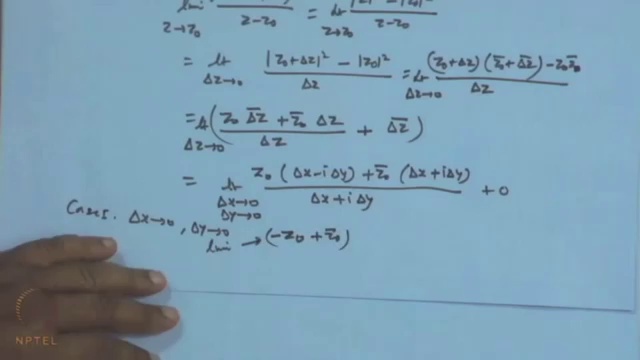 lim z→z₀ z-z₀ = lt z→z₀ |z|² - |z₀|² / z-z₀
= lt Δz→0 |z₀+Δz|² - |z₀|² / Δz = lt Δz→0 (z₀+Δz)(z̄₀+Δz̄) - z₀z̄₀ / Δz
= lt Δz→0 ( z₀ Δz̄ + z̄₀ Δz / Δz + Δz̄ )
= lt Δx→0 Δy→0 z₀(Δx-iΔy) + z̄₀(Δx+iΔy) / Δx+iΔy + 0
Case I. Δx→0, Δy→0
lim → (-z₀ + z̄₀)
NPTEL